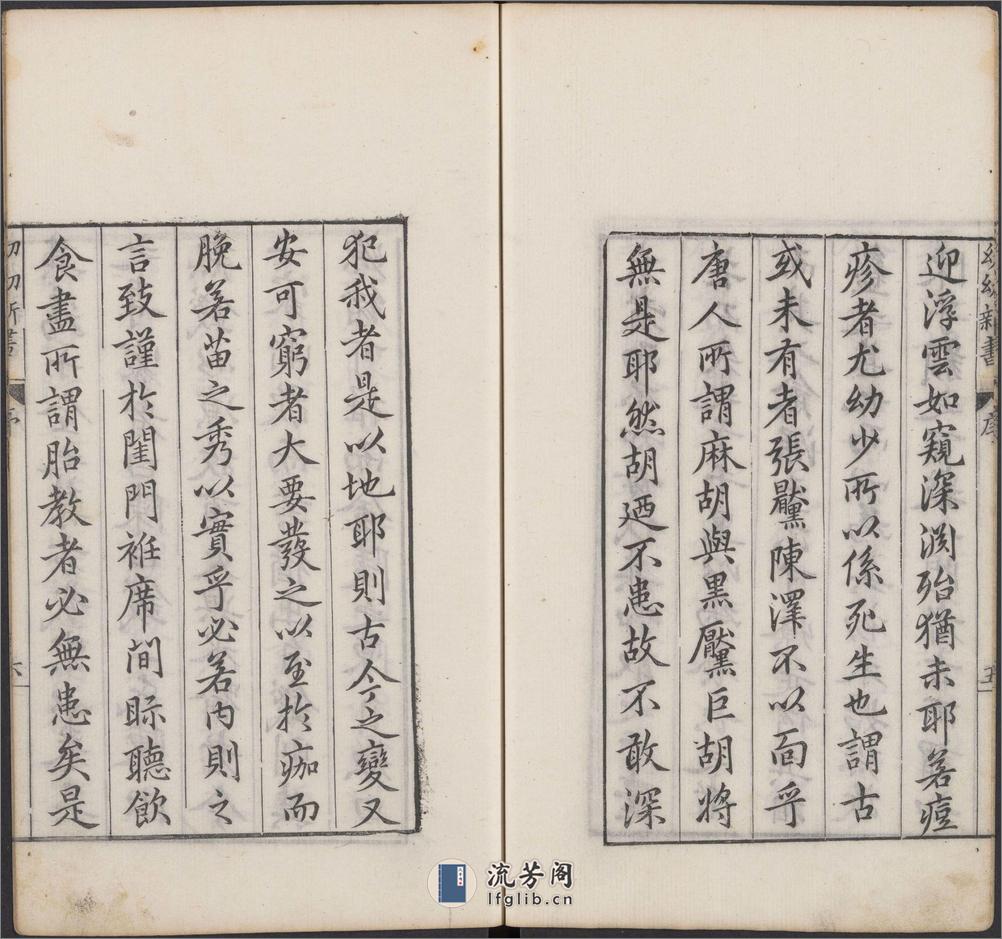 幼幼新書 序 五
迎浮雲如窺深淵殆猶未耶若痘
疹者尤幼少所以係死生也謂古
或未有者張黶陳澤不以面乎
唐人所謂麻胡與黑黶巨胡將
無是耶然胡廼不患故不敢深
犯我者是以地耶則古今之變又
安可窮者大要發之以至於痂而
脫若苗之秀以實乎必若內則之
言致謹於閨門袵席間眎聽飲
食盡所謂胎教者必無患矣是
六
流芳阁
lfglib.cn